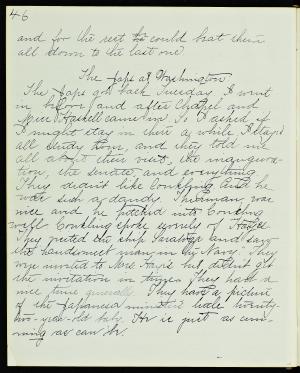 46
and for the rest he could beat them
all down to the last one
The Japs at Washington
The Japs got back Tuesday. I went
in before and after Chapel and
Miss Haskell came in. So I asked if
I might stay in there a while. I stayed
all study hour, and they told me
all about their visit, the inaugura-
tion, the senate, and everything
They didn't like Conkling and he
was such a dandy. Thurman was
nice and he pitched into Conkling
well. Conkling spoke scornly of Hayes
They visited the ship Saratoga and saw
the handsomest man in the Navy. They
were invited to Mrs. Hayes but didn't get
the invitation in time. They had a
nice time generally. They have a picture
of the Japanese minister's little twenty-
two-year-old baby. He is just as cun-
ning as can be.